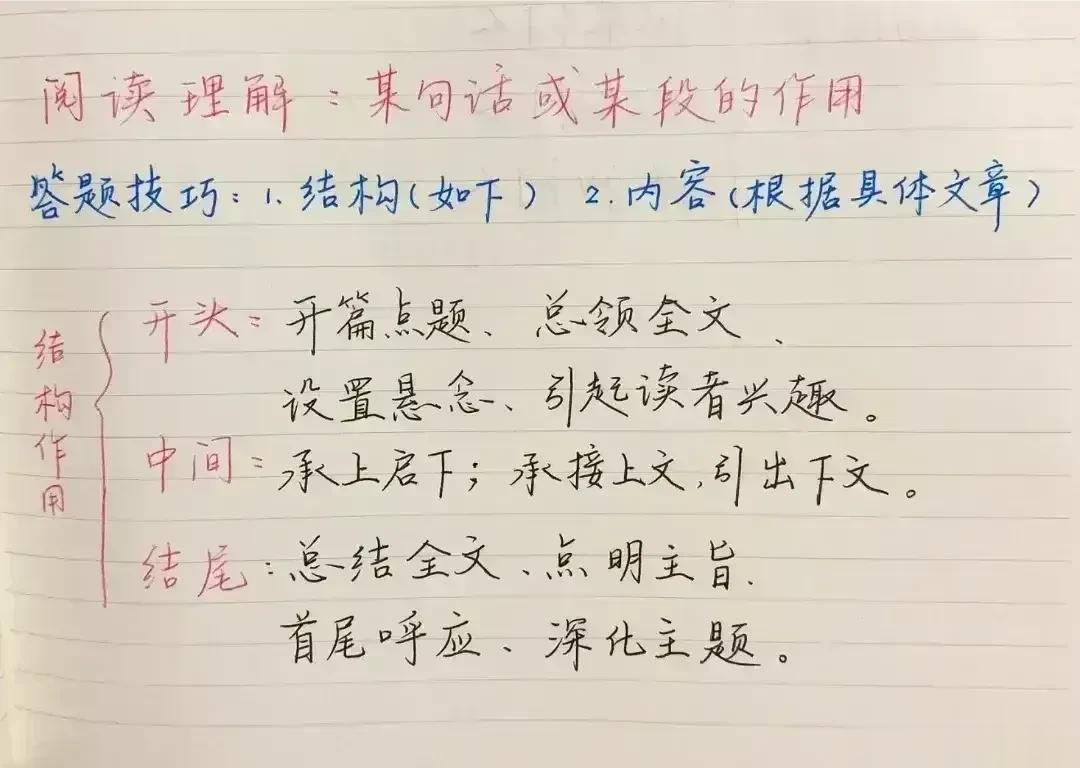 阅读理解：某句话或某段的作用
答题技巧：1.结构(如下) 2.内容(根据具体文章)
结构作用
开头：开篇点题、总领全文、
设置悬念、引起读者兴趣。
中间：承上启下；承接上文,引出下文。
结尾：总结全文、点明主旨、
首尾呼应、深化主题。